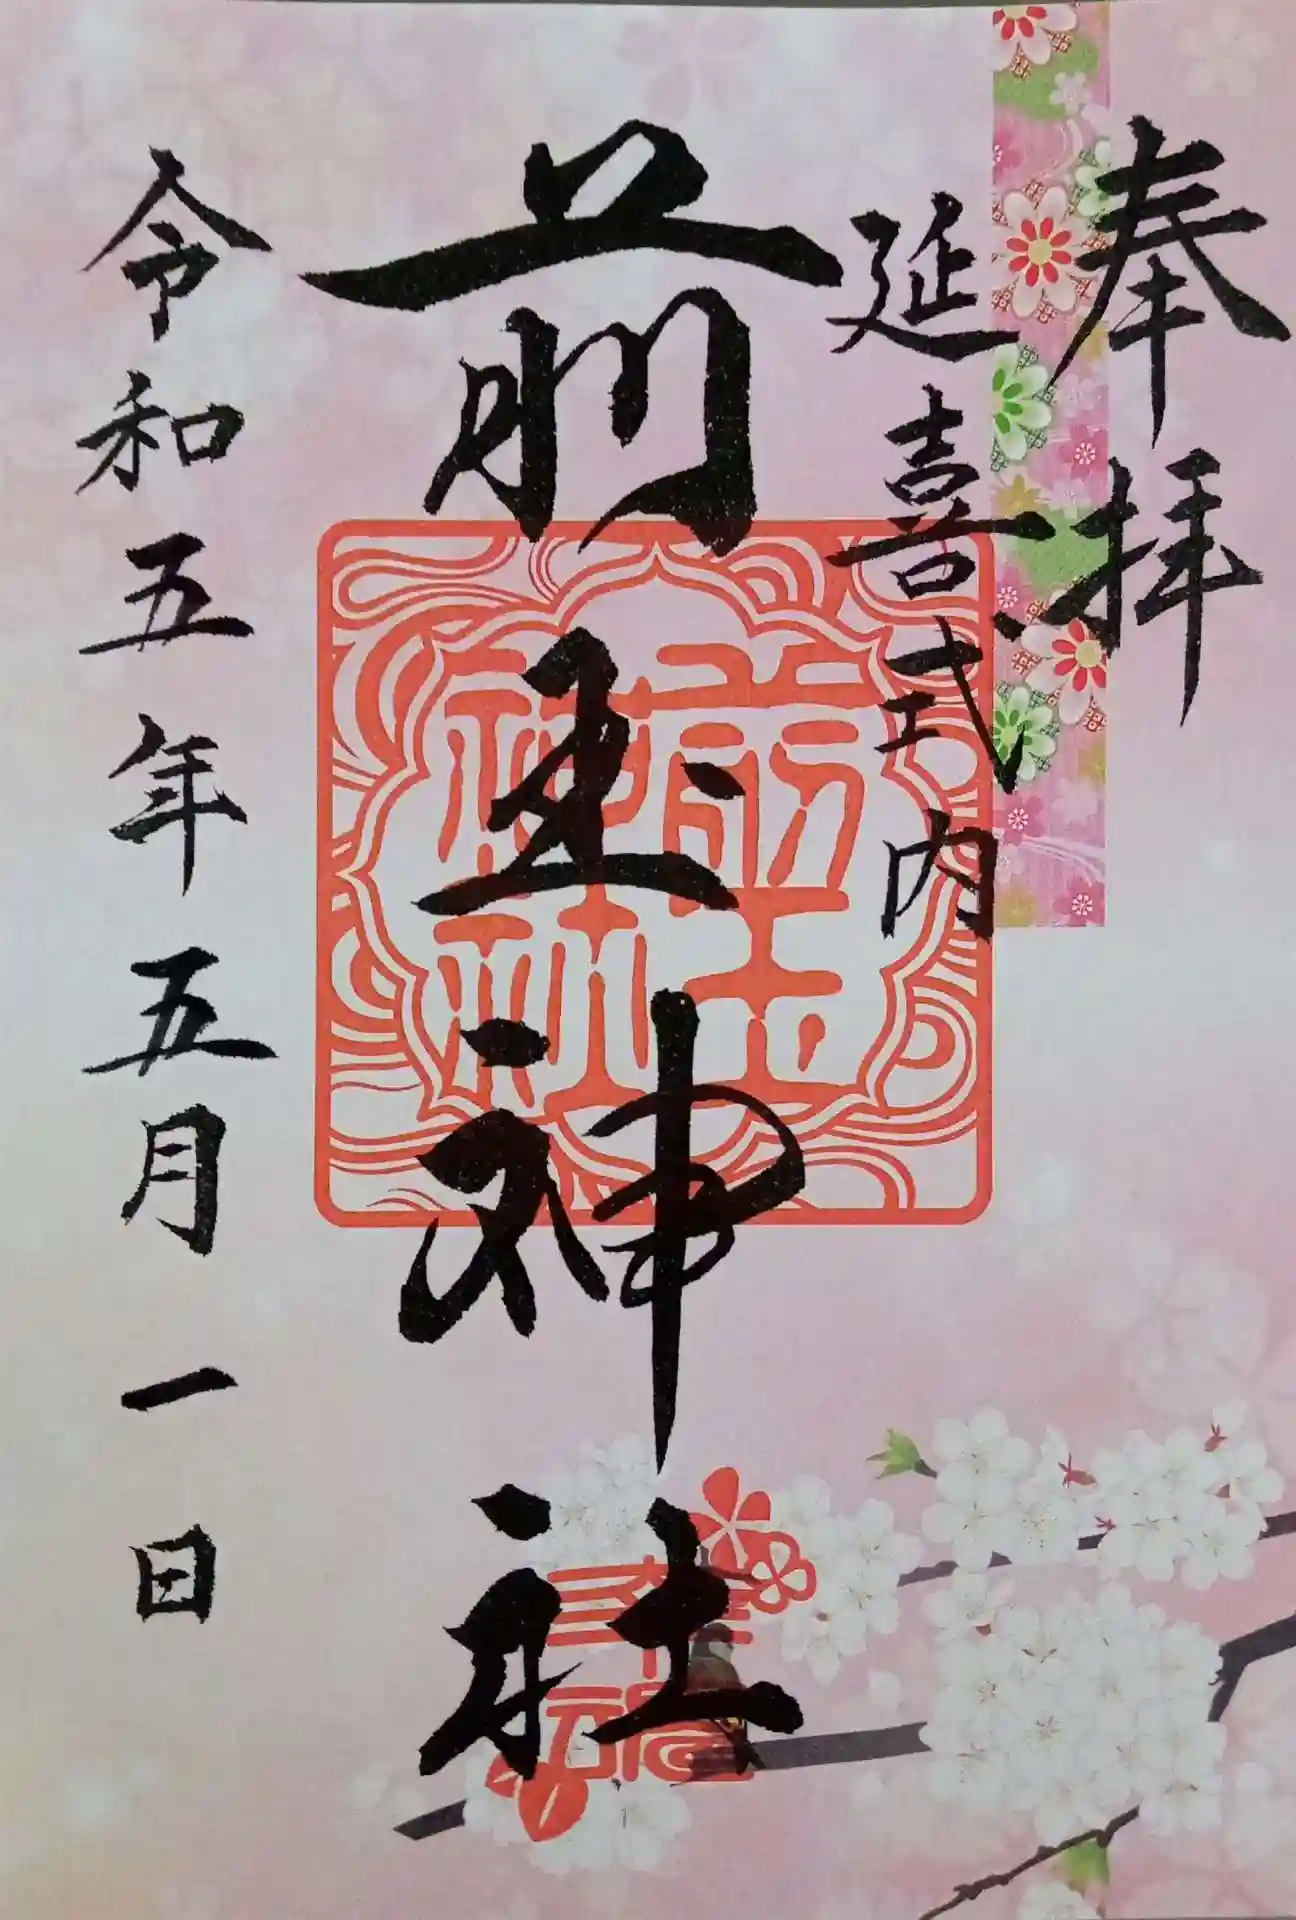 奉拝
延喜式内
前玉神社
前玉神社
令和五年五月一日